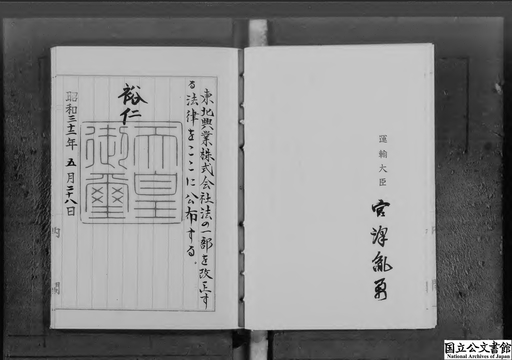 運輸大臣 宮澤胤勇
東北興業株式会社法の一部を改正す
る法律をここに公布する。
裕仁
天皇
御璽
昭和三十二年五月二十八日
国立公文書館
National Archives of Japan